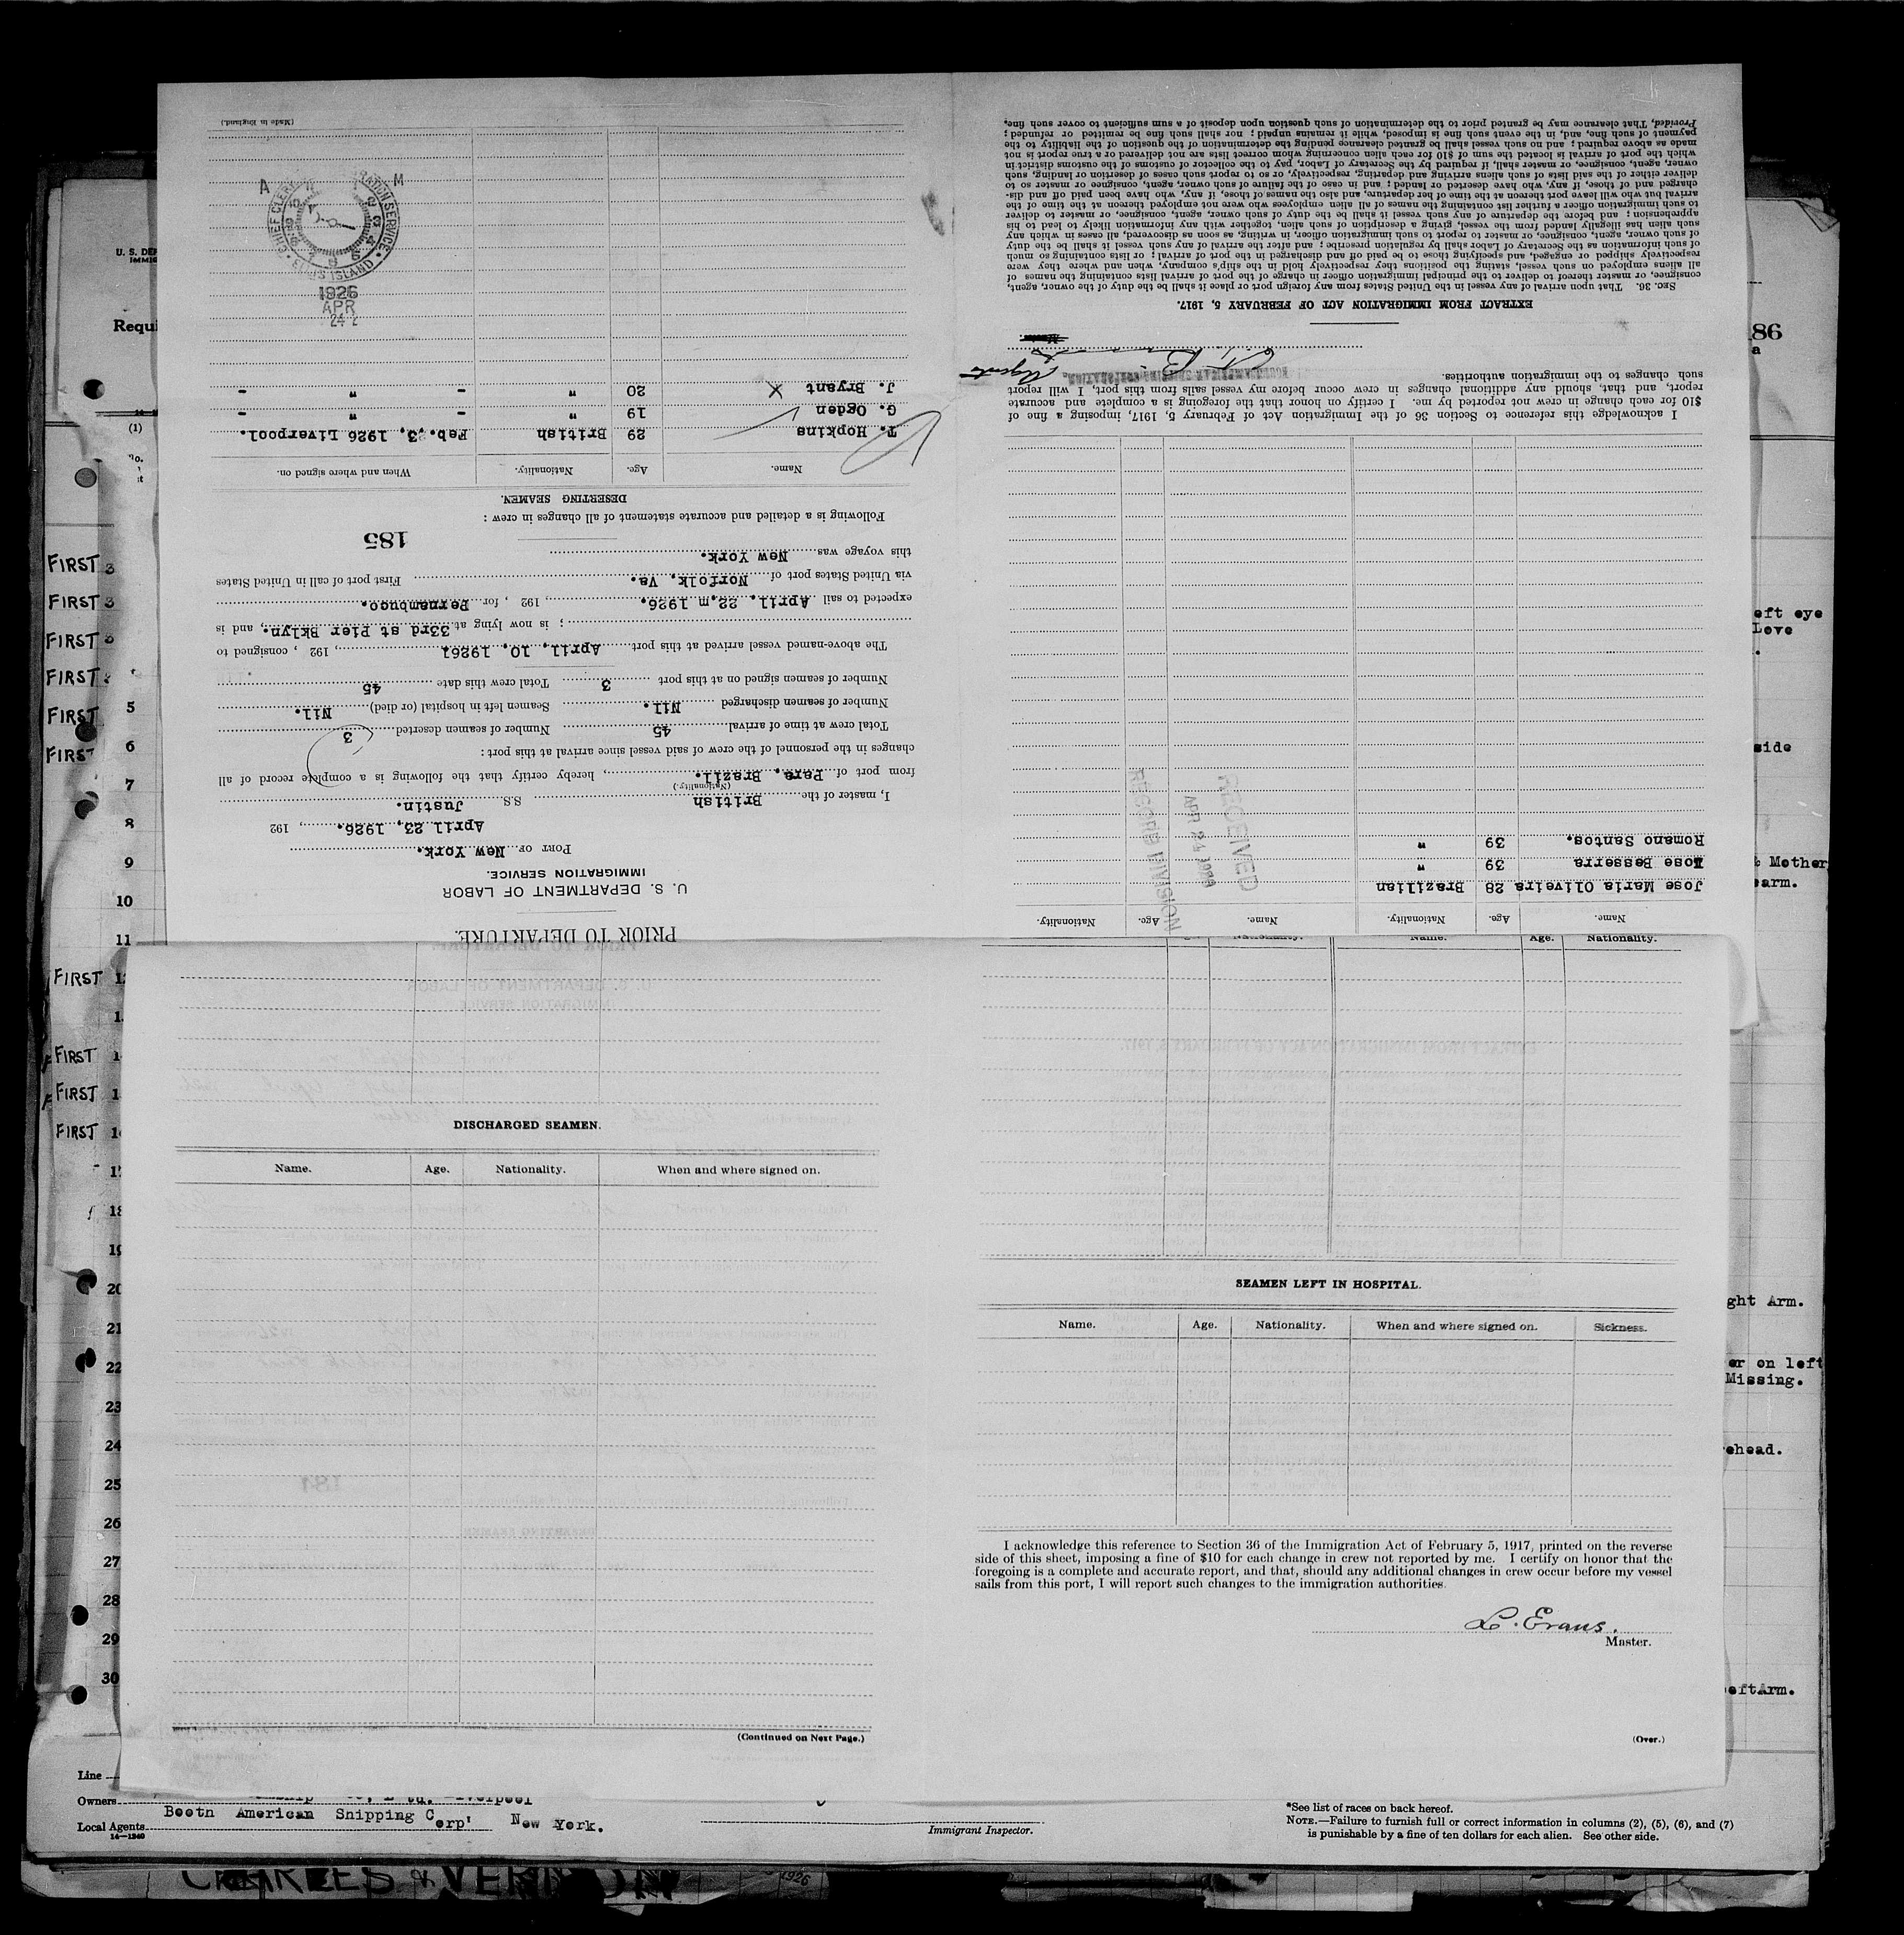 PRIOR TO DEPARTURE.
U. S. DEPARTMENT OF LABOR
IMMIGRATION SERVICE.
PORT OF New York.
April 23, 1926. , 192
I, master of the British S.S. Justin.
(Nationality.)
from port of Para. Brazil. , hereby certify that the following is a complete record of all
changes in the personnel of the crew of said vessel since arrival at this port :
Total crew at time of arrival 45 Number of seamen deserted 3
Number of seamen discharged Nil. Seamen left in hospital (or died) Nil.
Number of seamen signed on at this port 3 Total crew this date 45
The above-named vessel arrived at this port April, 10, 1926. , 192 , consigned to
; is now lying at 33rd st Pier Bklyn. , and is
expected to sail April. 22.m 1926. , 192 , for Pernambuco.
via United States port of Norfolk. Va. First port of call in United States
this voyage was New York.
185
Following is a detailed and accurate statement of all changes in crew :
DESERTING SEAMEN.
Name. Age. Nationality. When and where signed on.
T. Hopkins 29 British Feb. 3, 1926 Liverpool.
G. Ogden 19 " - " -
J. Bryant 20 " - " -
24
APR
1926
CHIEF CLERK
ELLIS ISLAND
A M
(Made in England.)
Name. Age. Nationality. Name. Age. Nationality.
Jose Maria Oliveira 28 Brazilian
Jose Besserra 39 "
Romano Santos. 39 "
RECEIVED
APR 24 1926
RECORD DIVISION
I acknowledge this reference to Section 36 of the Immigration Act of February 5, 1917, imposing a fine of
$10 for each change in crew not reported by me. I certify on honor that the foregoing is a complete and accurate
report, and that, should any additional changes in crew occur before my vessel sails from this port, I will report
such changes to the immigration authorities.
BOOTH AMERICAN SHIPPING CORPORATION,
Agents
EXTRACT FROM IMMIGRATION ACT OF FEBRUARY 5, 1917.
SEC. 36. That upon arrival of any vessel in the United States from any foreign port or place it shall be the duty of the owner, agent,
consignee, or master thereof to deliver to the principal immigration officer in charge of the port of arrival lists containing the names of
all aliens employed on such vessel, stating the positions they respectively hold in the ship's company, when and where they were
respectively shipped or engaged, and specifying those to be paid off and discharged in the port of arrival ; or lists containing so much
of such information as the Secretary of Labor shall by regulation prescribe ; and after the arrival of any such vessel it shall be the duty
of such owner, agent, consignee, or master to report to such immigration officer, in writing, as soon as discovered, all cases in which any
such alien has illegally landed from the vessel, giving a description of such alien, together with any information likely to lead to his
apprehension ; and before the departure of any such vessel it shall be the duty of such owner, agent, consignee, or master to deliver
to such immigration officer a further list containing the names of all alien employees who were not employed thereon at the time of the
arrival but who will leave port thereon at the time of her departure, and also the names of those, if any, who have been paid off and dis-
charged and of those, if any, who have deserted or landed ; and in case of the failure of such owner, agent, consignee or master so to
deliver either of the said lists of such aliens arriving and departing, respectively, or so to report such cases of desertion or landing, such
owner, agent, consignee, or master shall, if required by the Secretary of Labor, pay to the collector of customs of the customs district in
which the port of arrival is located the sum of $10 for each alien concerning whom correct lists are not delivered or a true report is not
made as above required ; and no such vessel shall be granted clearance pending the determination of the question of the liability to the
payment of such fine, and, in the event such fine is imposed, while it remains unpaid ; nor shall such fine be remitted or refunded ;
Provided, That clearance may be granted prior to the determination of such question upon deposit of a sum sufficient to cover such fine,
Name. Age. Nationality.
DISCHARGED SEAMEN.
Name. Age. Nationality. When and where signed on.
(Continued on Next Page.)
SEAMEN LEFT IN HOSPITAL.
Name. Age. Nationality. When and where signed on. Sickness.
I acknowledge this reference to Section 36 of the Immigration Act of February 5, 1917, printed on the reverse
side of this sheet, imposing a fine of $10 for each change in crew not reported by me. I certify on honor that the
foregoing is a complete and accurate report, and that, should any additional changes in crew occur before my vessel
sails from this port, I will report such changes to the immigration authorities.
L. Evans.
Master.
(Over.)
U. S. DE
IMMIG
Requi
(1)
FIRST 3
FIRST 3
FIRST
FIRST
FIRST 5
FIRST 6
7
8
9
10
11
FIRST
FIRST
FIRST
FIRST
18
19
20
21
22
23
24
25
26
27
28
29
30
86
a
eft eye
Love
side
& Mother
arm.
ght Arm.
er on left
Missing.
ehead.
eft Arm.
Line
Owners
Local Agents Booth American Shipping Corp' New York.
14—1240
Immigrant Inspector.
*See list of races on back hereof.
NOTE.—Failure to furnish full or correct information in columns (2), (5), (6), and (7)
is punishable by a fine of ten dollars for each alien. See other side.
CHARLES & VERNON
1926